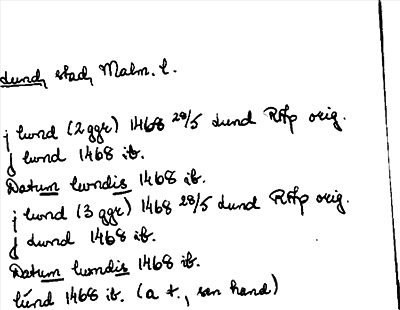 Lund, stad, Malm. l.
j lund (2 ggr) 1468 28/5 Lund RAp orig.
j lund 1468 ib.
Datum lundis 1468 ib.
j lund (3 ggr) 1468 28/5 Lund RAp orig.
j Lund 1468 ib.
Datum lundis 1468 ib.
lund 1468 ib. (a t., sen hand)